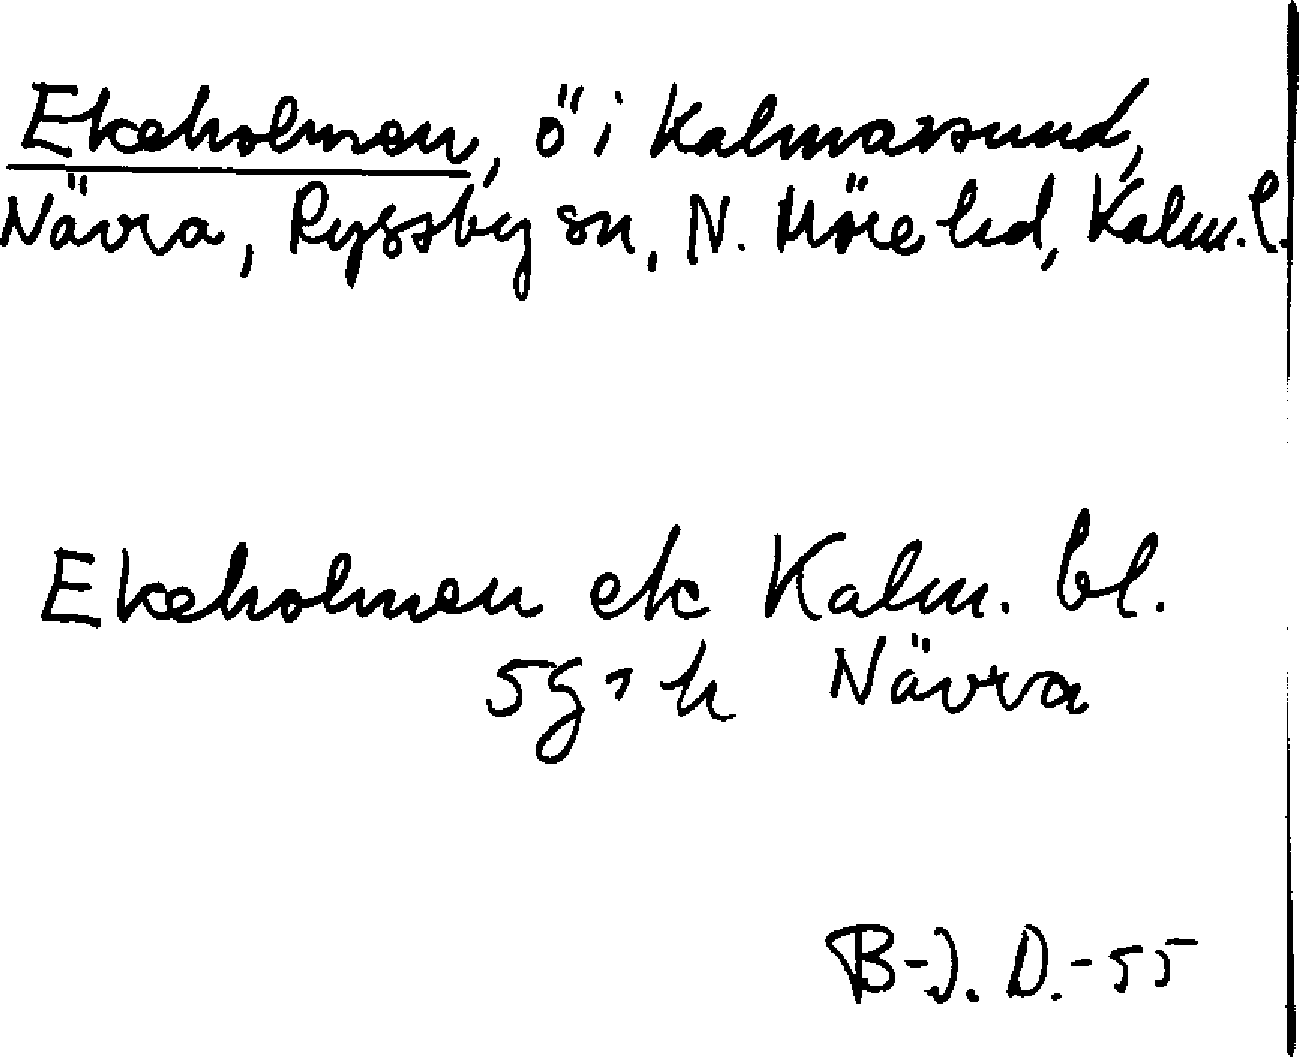 Ekeholmen, ö i Kalmarsund,
Nävra, Ryssby sn, N. Möre hd, Kalm. l.
Ekeholmen ek Kalm. bl.
Nävra
B-J. D.-55